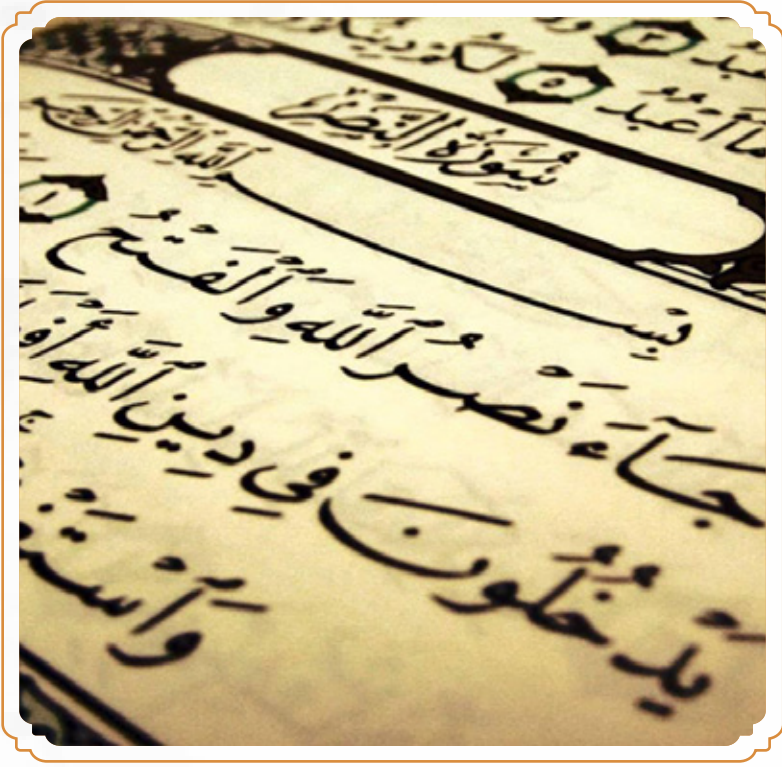 عبد ٣
مَا أَعْبُدُ ٥ لَكُمْ دِينُكُمْ
سُورَةُ النَّصْرِ
بِسْمِ ٱللَّهِ ٱلرَّحْمَٰنِ ٱلرَّحِيمِ
جَآءَ نَصْرُ ٱللَّهِ وَٱلْفَتْحُ ١
يَدْخُلُونَ فِي دِينِ ٱللَّهِ